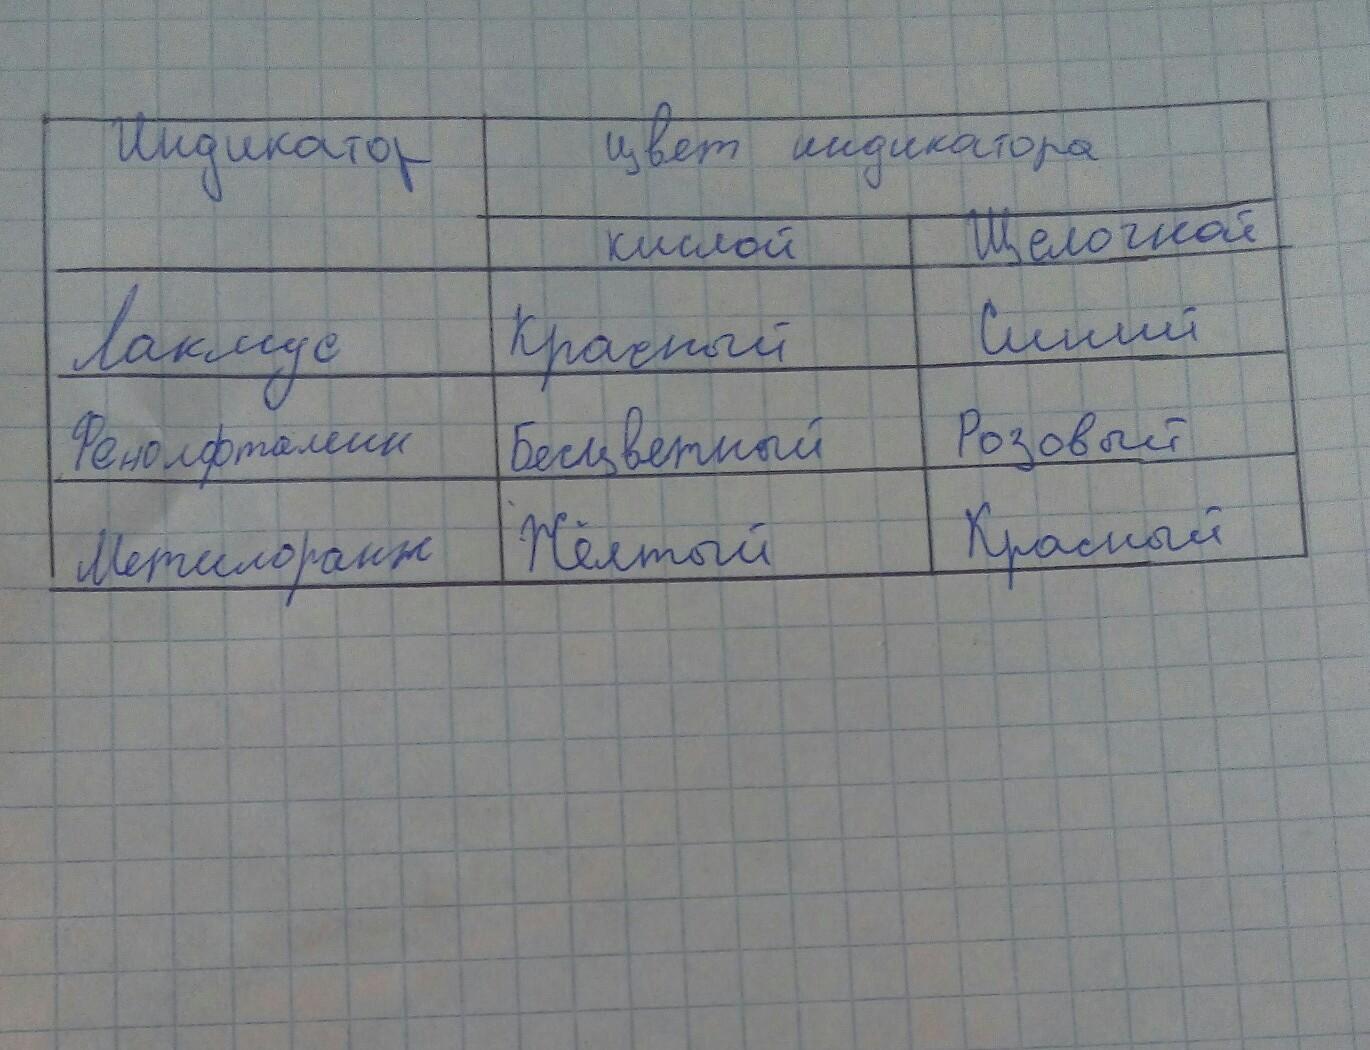 Индикатор цвет индикатора
кислой Щелочной
Лакмус Красный Синий
Фенолфталеин Бесцветный Розовый
Метилоранж Жёлтый Красный